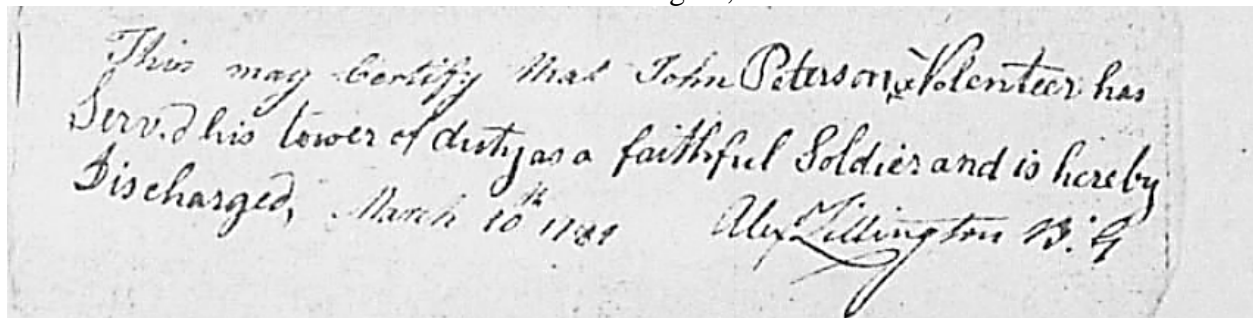 This may Certify that John Peterson, a Volenteer has
Serv.d his tower of duty as a faithful Soldier and is hereby
Discharged, March 10th
Alex Lillington B. G